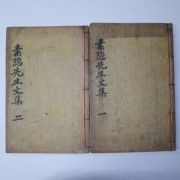 素隐先生文集 一
素隐先生文集 二